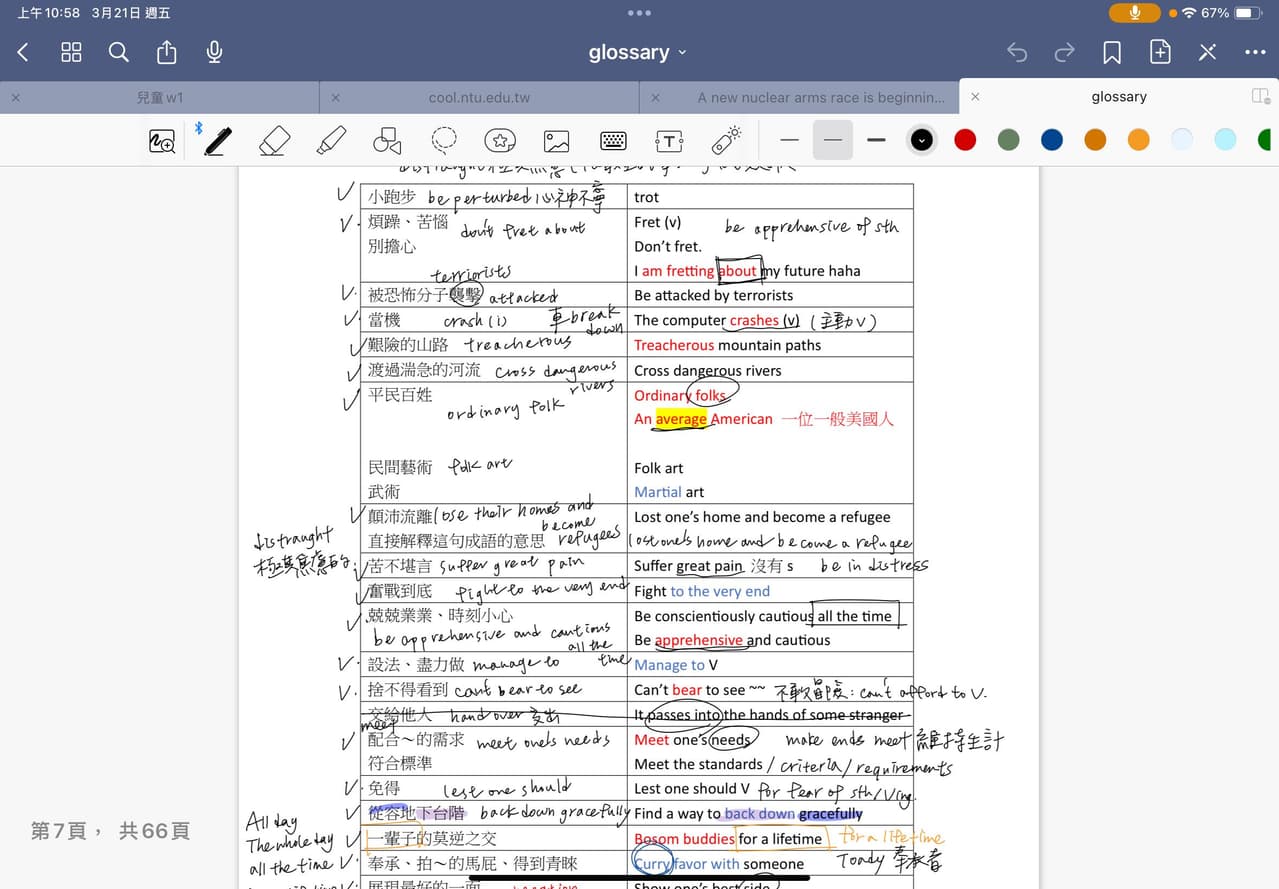 上午10:58 3月21日 週五
67%
glossary
兒童w1
cool.ntu.edu.tw
A new nuclear arms race is beginnin...
glossary
小跑步 be perturbed 心神不寧
trot
煩躁、苦惱 don't fret about
Fret (v) be apprehensive of sth
別擔心
Don't fret.
I am fretting about my future haha
terriorists
被恐怖分子襲擊 attacked
Be attacked by terrorists
當機 crash(i) 車break down
The computer crashes (v) (主動v)
艱險的山路 treacherous
Treacherous mountain paths
渡過湍急的河流 cross dangerous rivers
Cross dangerous rivers
平民百姓 ordinary folk
Ordinary folks
An average American 一位一般美國人
民間藝術 folk art
Folk art
武術
Martial art
顛沛流離(lose their homes and become refugees
Lost one's home and become a refugee
直接解釋這句成語的意思
lost one's home and become a refugee
distraught
極其焦慮的
苦不堪言 suffer great pain
Suffer great pain 沒有 s be in distress
奮戰到底 fight to the very end
Fight to the very end
兢兢業業、時刻小心
Be conscientiously cautious all the time
be apprehensive and cautious all the time
Be apprehensive and cautious
設法、盡力做 manage to
Manage to V
捨不得看到 can't bear to see
Can't bear to see ~~ 不敢冒險: can't afford to V.
交給他人 hand over 交出
It passes into the hands of some stranger
meet
配合～的需求 meet one's needs
Meet one's needs make ends meet 維持生計
符合標準
Meet the standards / criteria / requirements
免得 lest one should
Lest one should V for fear of sth/Ving.
從容地下台階 back down gracefully
Find a way to back down gracefully
All day
The whole day
all the time
一輩子的莫逆之交
Bosom buddies for a lifetime for a lifetime
奉承、拍～的馬屁、得到青睞
Curry favor with someone Toady 奉承者
展現最好的一面
Show one's best side
第7頁， 共66頁